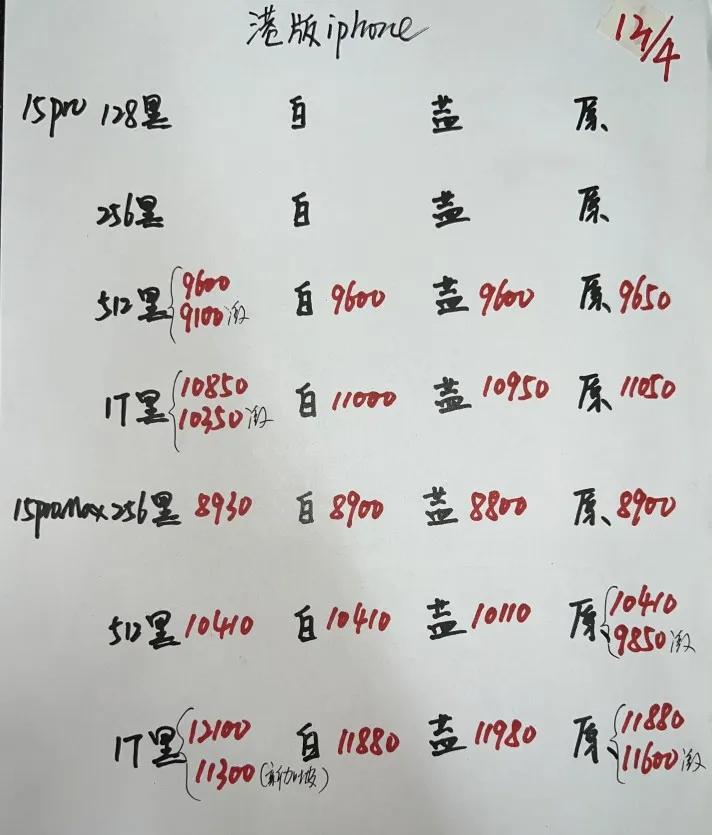 港版iphone 12/4
15pro 128黑 白 蓝 原、
256黑 白 蓝 原、
512黑 9600 白 9600 蓝 9600 原、9650
9100 激
1T黑 10850 白 11000 蓝 10950 原、11050
10350 激
15proMax 256黑 8930 白 8900 蓝 8800 原、8900
512黑 10410 白 10410 蓝 10110 原、10410
9850 激
1T黑 12100 白 11880 蓝 11980 原、11880
11300 (新加坡) 11600 激